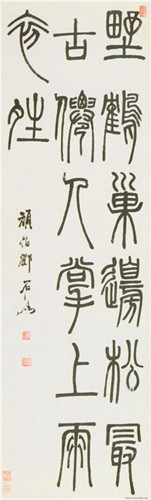 野鶴巢邊松最
古僊人掌上雨
初夝
頑伯鄧石如